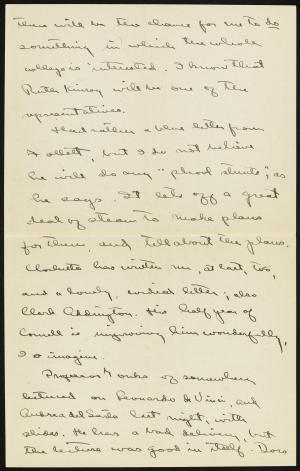 there will be the chance for me to do
something in which the whole
college is interested. I know that
Ruth Kinsey will be one of the
representatives.
Had rather a blue letter from
Follett, but I do not believe
he will do any "phool stunts", as
he says. It lets off a great
deal of steam to make plans
for them, and tell about the plans.
Charlotte has written me, at last, too,
and a lovely, cordial letter; also
Clark Addington. His half year of
Cornell is improving him wonderfully,
I imagine.
Professor of somewhere
lectured on Leonardo da Vinci, and
Andrea del Sarto last night, with
slides. He has a bad delivery, but
the lecture was good in itself. Does